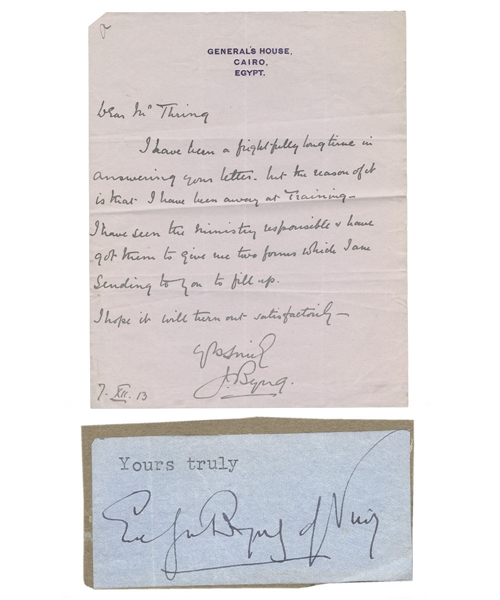 GENERAL'S HOUSE,
CAIRO,
EGYPT.
Dear Mrs Thring
I have been a frightfully long time in
answering your letter - but the reason of it
is that I have been away at Training -
I have seen the Ministry responsible & have
got them to give me two forms which I am
sending to you to fill up.
I hope it will turn out satisfactorily -
J. Byng.
7. XII. 13
Yours truly
Byng of Vimy